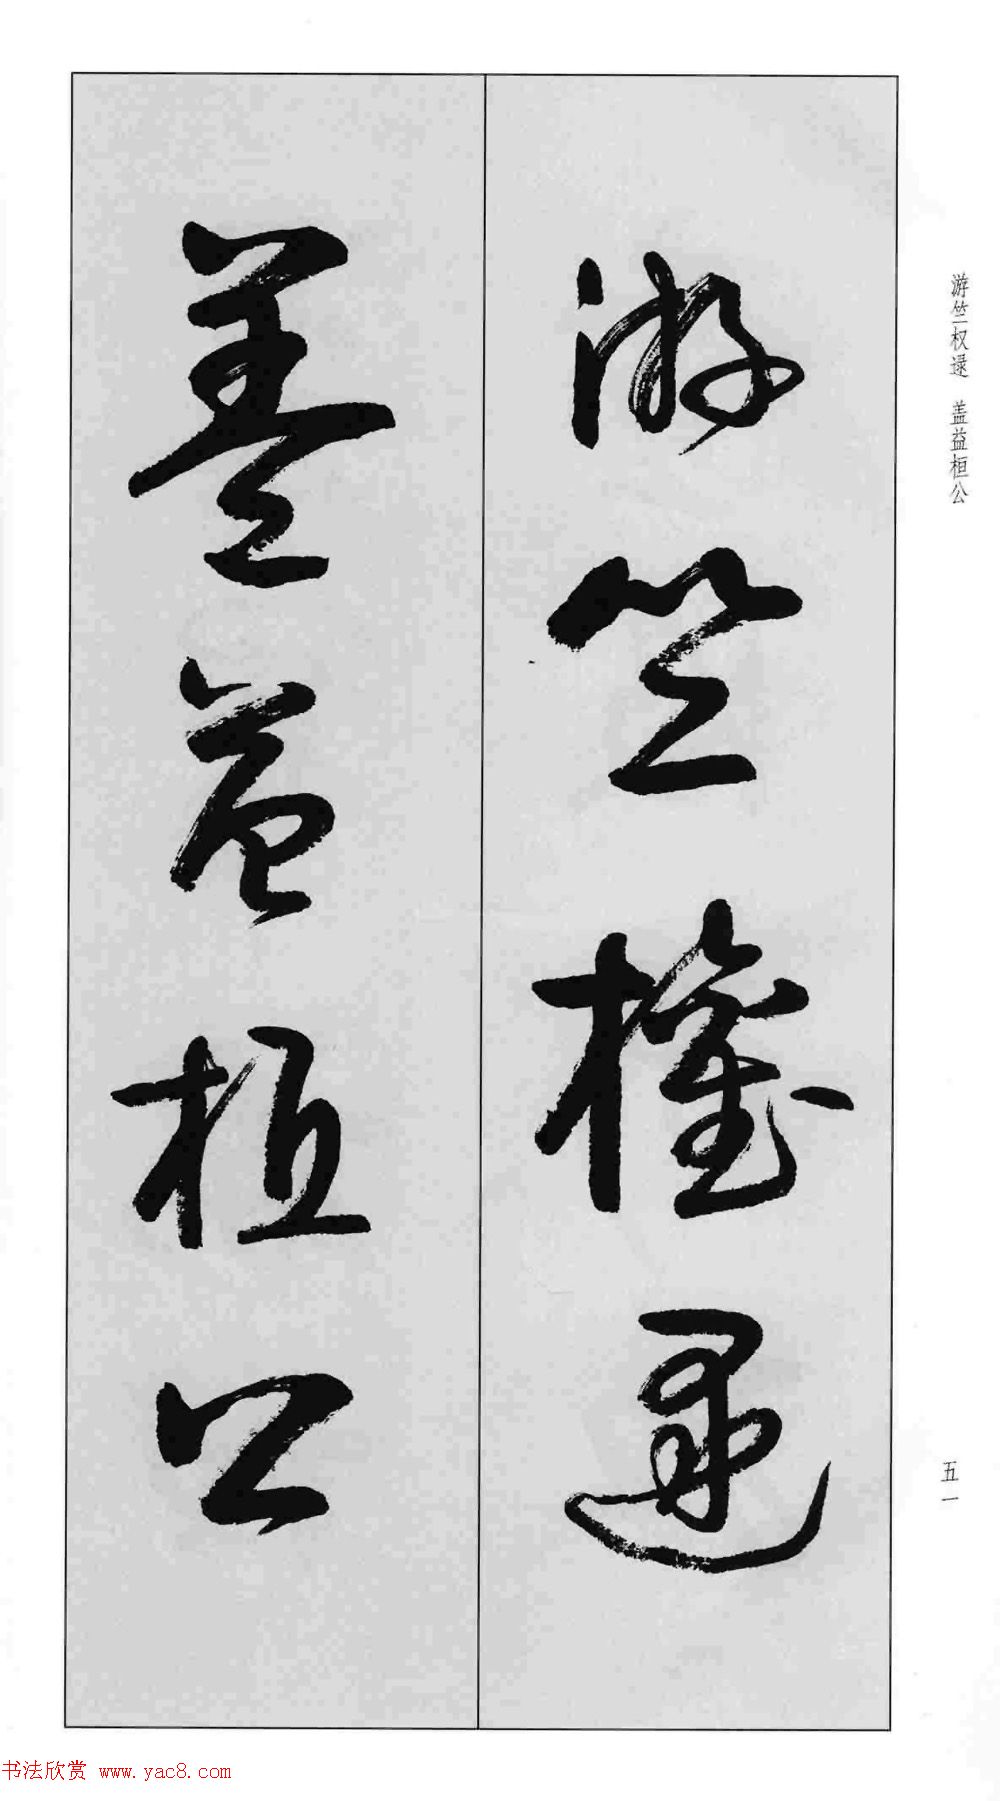 游竺權逯
盖益桓公
游竺权逯　盖益桓公
五一
书法欣赏 www.yac8.com